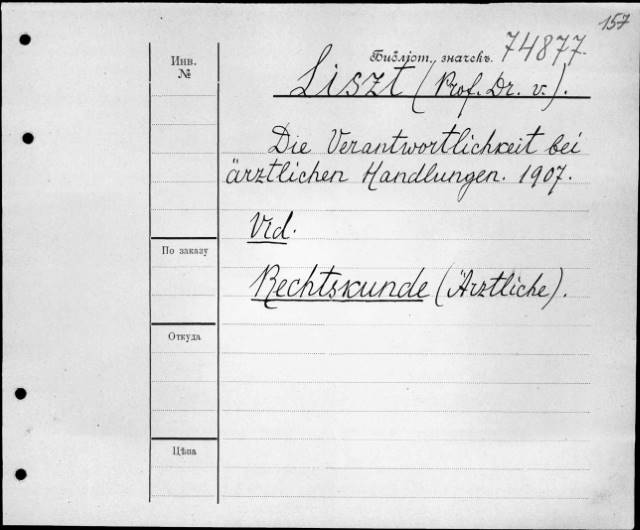 157
Инв.
№
Библіот. значекъ. 74877.
Liszt (Prof. Dr. v.).
Die Verantwortlichkeit bei
ärztlichen Handlungen. 1907.
Vid.
По заказу
Rechtskunde (Ärztliche).
Откуда
Цѣна